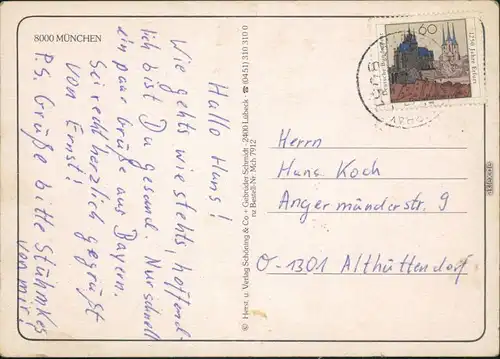 8000 MÜNCHEN
Hallo Hans!
Wie gehts wie stehts, hoffend-
lich bist Du gesund. Nur schnell
ein paar Grüße aus Bayern.
Sei recht herzlich gegrüßt
von Ernst!
P.S. Grüße bitte Stühmkes
von mir!
© Herst. u. Verlag Schöning & Co + Gebrüder Schmidt · 2400 Lübeck · ☎ (0451) 310 310 0
ru Bestell-Nr. Mch 7912
60
1250 Jahre Erfurt
Deutsche Bundespost
Herrn
Hans Koch
Angermünderstr. 9
O-1301 Althüttendorf